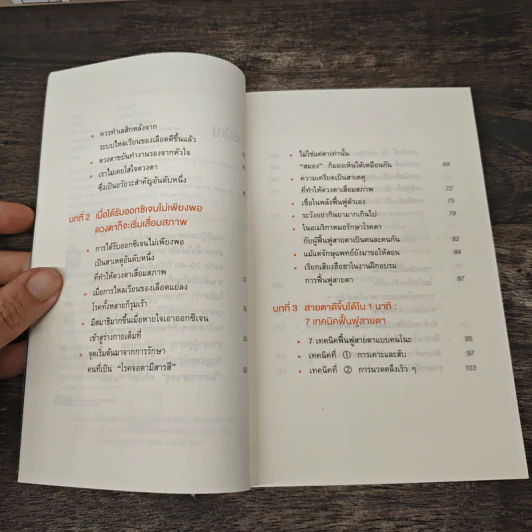 ควรทำเลสิกหลังจาก
ระบบไหลเวียนของเลือดดีขึ้นแล้ว
ดวงตาขยันทำงานรองจากหัวใจ
เราไม่เคยใส่ใจดวงตา
ซึ่งเป็นอวัยวะสำคัญอันดับหนึ่ง
บทที่ 2 เมื่อได้รับออกซิเจนไม่เพียงพอ
ดวงตาก็จะเริ่มเสื่อมสภาพ
• การได้รับออกซิเจนไม่เพียงพอ
เป็นสาเหตุอันดับหนึ่ง
ที่ทำให้ดวงตาเสื่อมสภาพ
• เมื่อการไหลเวียนของเลือดแย่ลง
โรคทั้งหลายก็รุมเร้า
• มีสมาธิมากขึ้นเมื่อหายใจเอาออกซิเจน
เข้าสู่ร่างกายเต็มที่
• จุดเริ่มต้นมาจากการรักษา
คนที่เป็น "โรคจอตามีสารสี"
• ไม่ใช่แค่ตาเท่านั้น
"สมอง" ก็มองเห็นได้เหมือนกัน 69
• ความเครียดเป็นสาเหตุ
ที่ทำให้ดวงตาเสื่อมสภาพ 72
• เชื่อในพลังฟื้นฟูตัวเอง 75
• ระวังอย่ากินยามากเกินไป 79
• ในอเมริกาหมอรักษาโรคตา
กับผู้ฟื้นฟูสายตาเป็นคนละคนกัน 82
• แม้แต่จักษุแพทย์ยังมาขอให้สอน 84
• เรียกเสียงฮือฮาในงานฝึกอบรม
การฟื้นฟูสายตา 87
บทที่ 3 สายตาดีขึ้นได้ใน 1 นาที :
7 เทคนิคฟื้นฟูสายตา
• 7 เทคนิคฟื้นฟูสายตาแบบคนโนะ 95
• เทคนิคที่ ① การเคาะและสับ 97
• เทคนิคที่ ② การนวดคลึงเร็ว ๆ 103